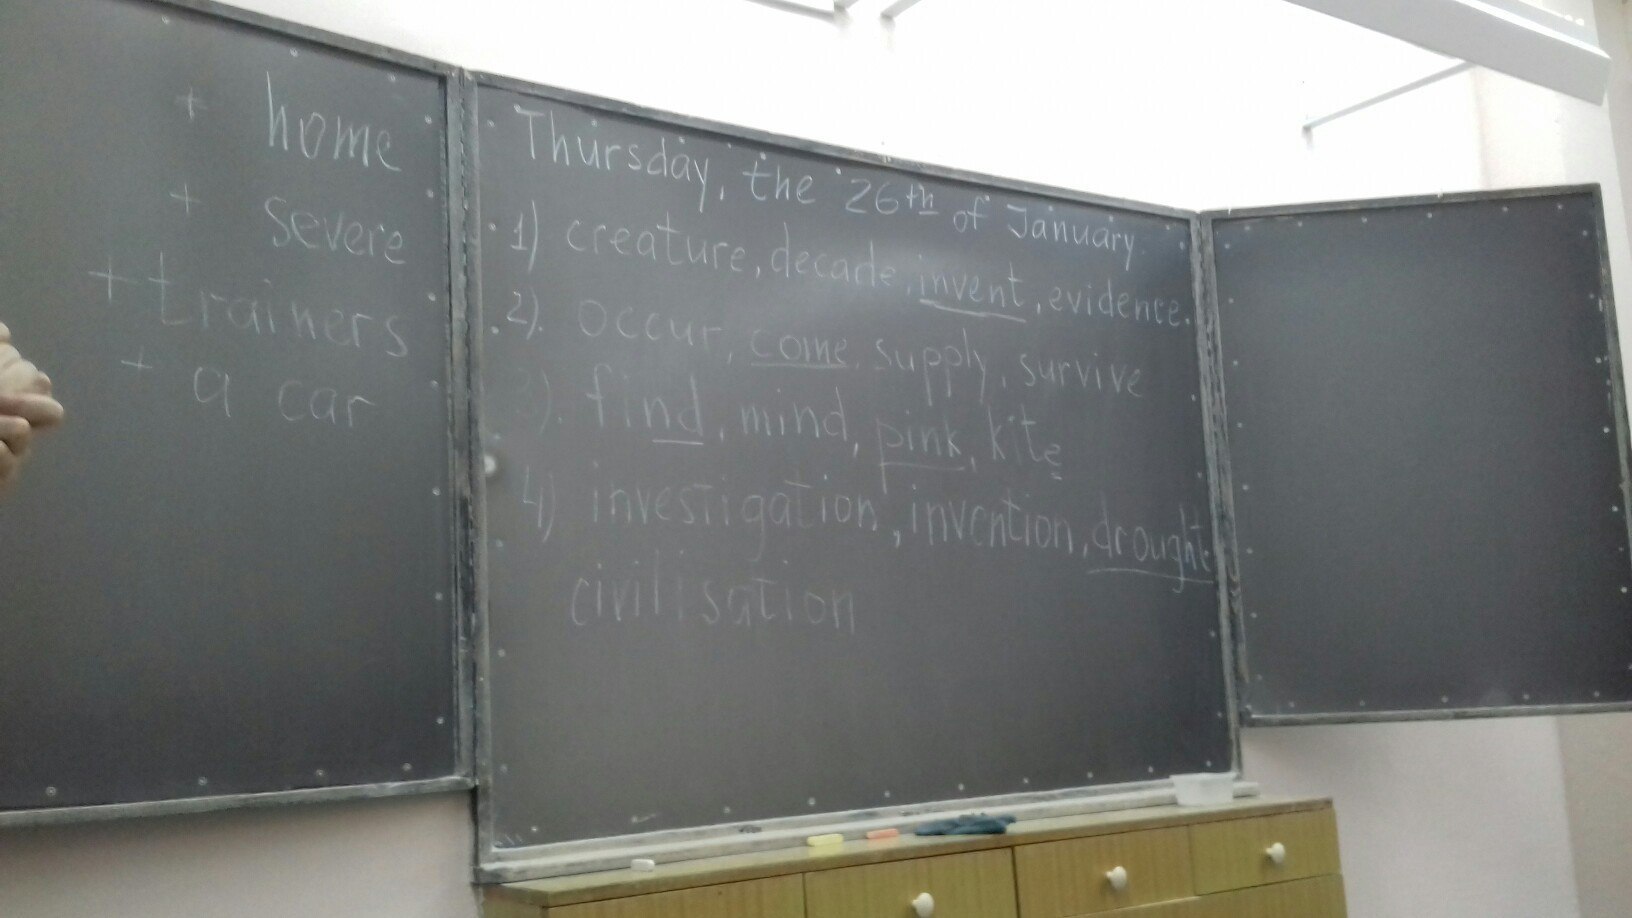 + home
+ severe
+ trainers
+ a car
Thursday, the 26th of January.
1) creature, decade, invent, evidence.
2). occur, come, supply, survive
3). find, mind, pink, kite
4) investigation, invention, drought
civilisation